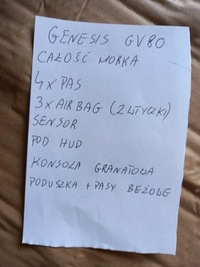 GENESIS GV80
CAŁOŚĆ NORKA
4x PAS
3x AIRBAG (2 WTYCZKI)
SENSOR
POD HUD
KONSOLA GRANATOWA
PODUSZKA + PASY BEŻOWE